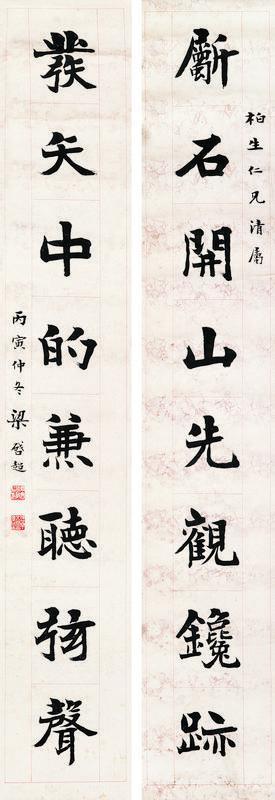 柏生仁兄清屬
斸石開山先觀鑱跡
發矢中的兼聽弦聲
丙寅仲冬梁啓超